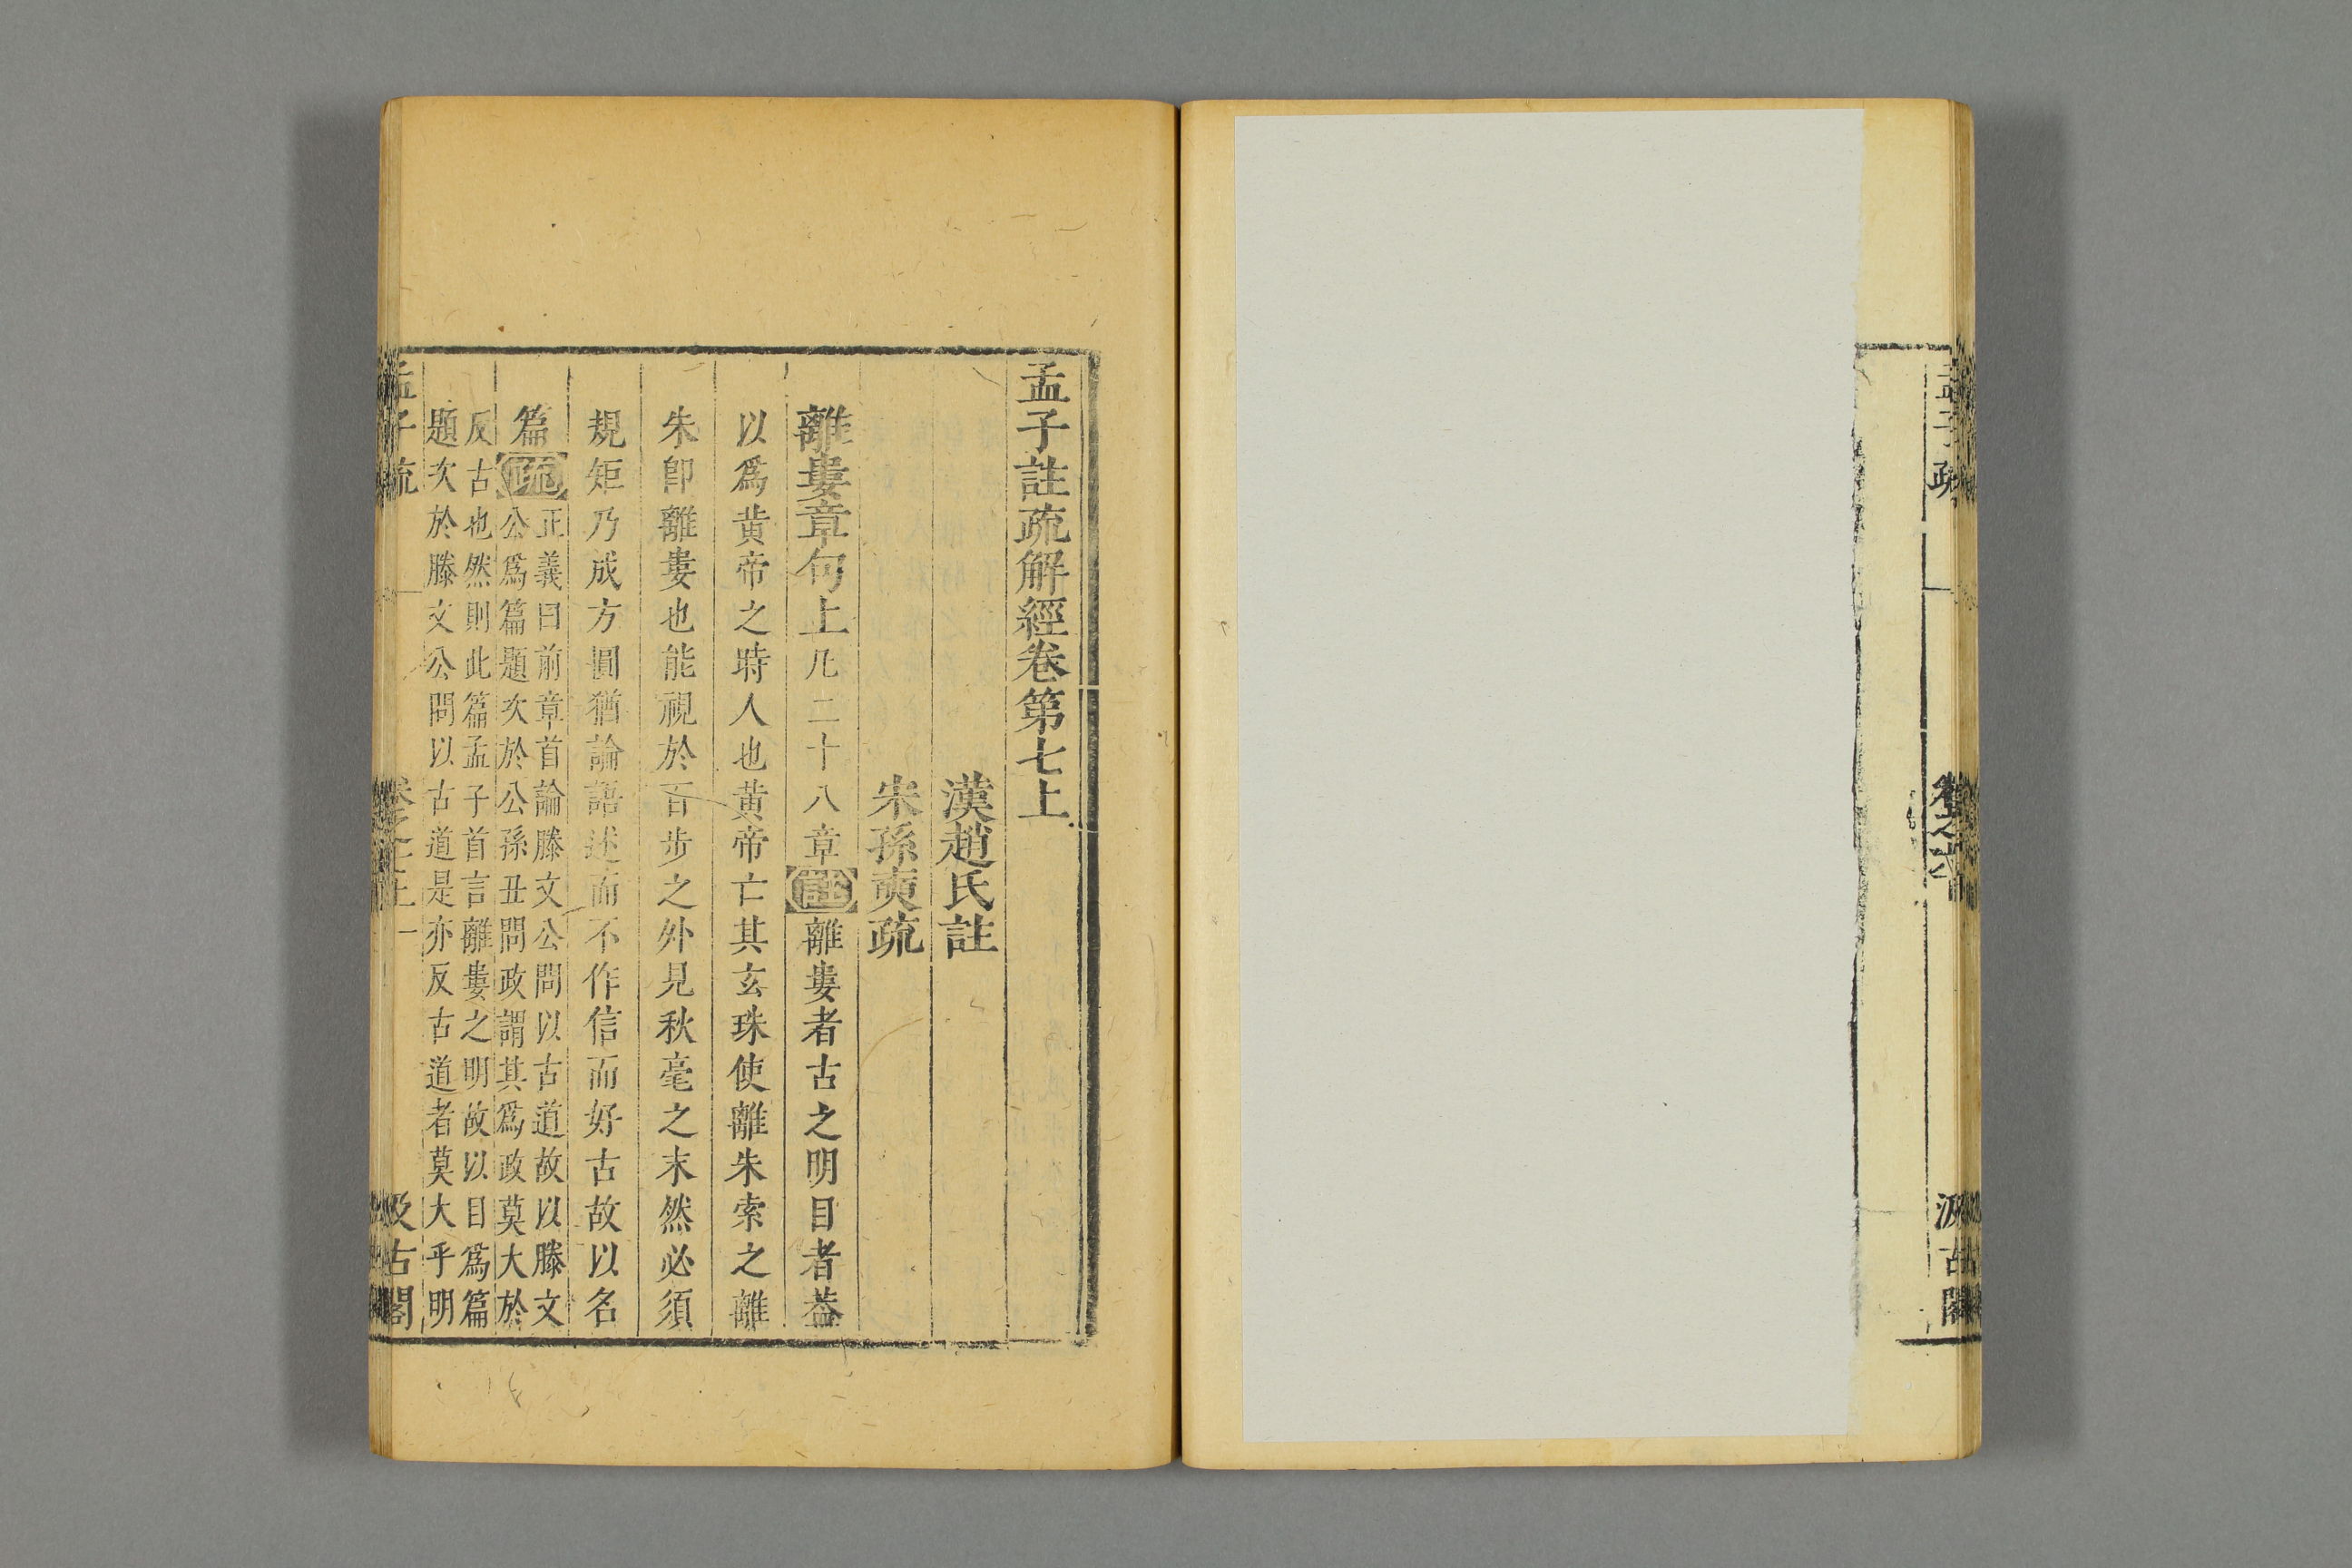 孟子疏
孟子註疏解經卷第七上
漢趙氏註
宋孫奭疏
離婁章句上凡二十八章註離婁者古之明目者葢
以爲黃帝之時人也黃帝亡其玄珠使離朱索之離
朱卽離婁也能視於百步之外見秋毫之末然必須
規矩乃成方圓猶論語述而不作信而好古故以名
篇疏正義曰前章首論滕文公問以古道故以滕文
公爲篇題次於公孫丑問政謂其爲政莫大於
反古也然則此篇孟子首言離婁之明故以目爲篇
題次於滕文公問以古道是亦反古道者莫大乎明
孟子疏
卷之七上
一
汲古閣